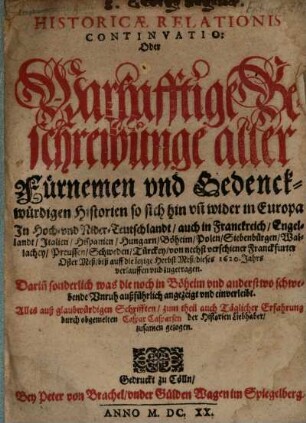 HISTORICÆ RELATIONIS
CONTINVATIO:
Oder
Warhafftige Be
schreibunge aller
Fürnemen vnd Gedenck-
würdigen Historien so sich hin vñ wider in Europa
In Hoch-vnd Nider-Teutschlandt / auch in Franckreich / Engel-
landt / Italien / Hispanien / Hungarn / Böheim / Polen / Siebenbürgen / Wal-
lachey / Preussen / Schweden / Türckey / von nechst verschiener Franckfurter
Oster Meß / biß auff die jetzige Herbst Meß dieses 1620. Jahrs
verlauffen vnd zugetragen.
Darin sonderlich was die noch in Böheim vnd anderstwo schwe-
bende Vnruh außführlich angezeigt vnd einverleibt.
Alles auß glaubwürdigen Schrifften / zum theil auch Täglicher Erfahrung
durch obgemelten der Historien liebhaber /
zusamen gezogen.
Gedruckt zu Cölln /
Bey Peter von Brachel / vnder Gülden Wagen im Spiegelberg.
ANNO M. DC. XX.